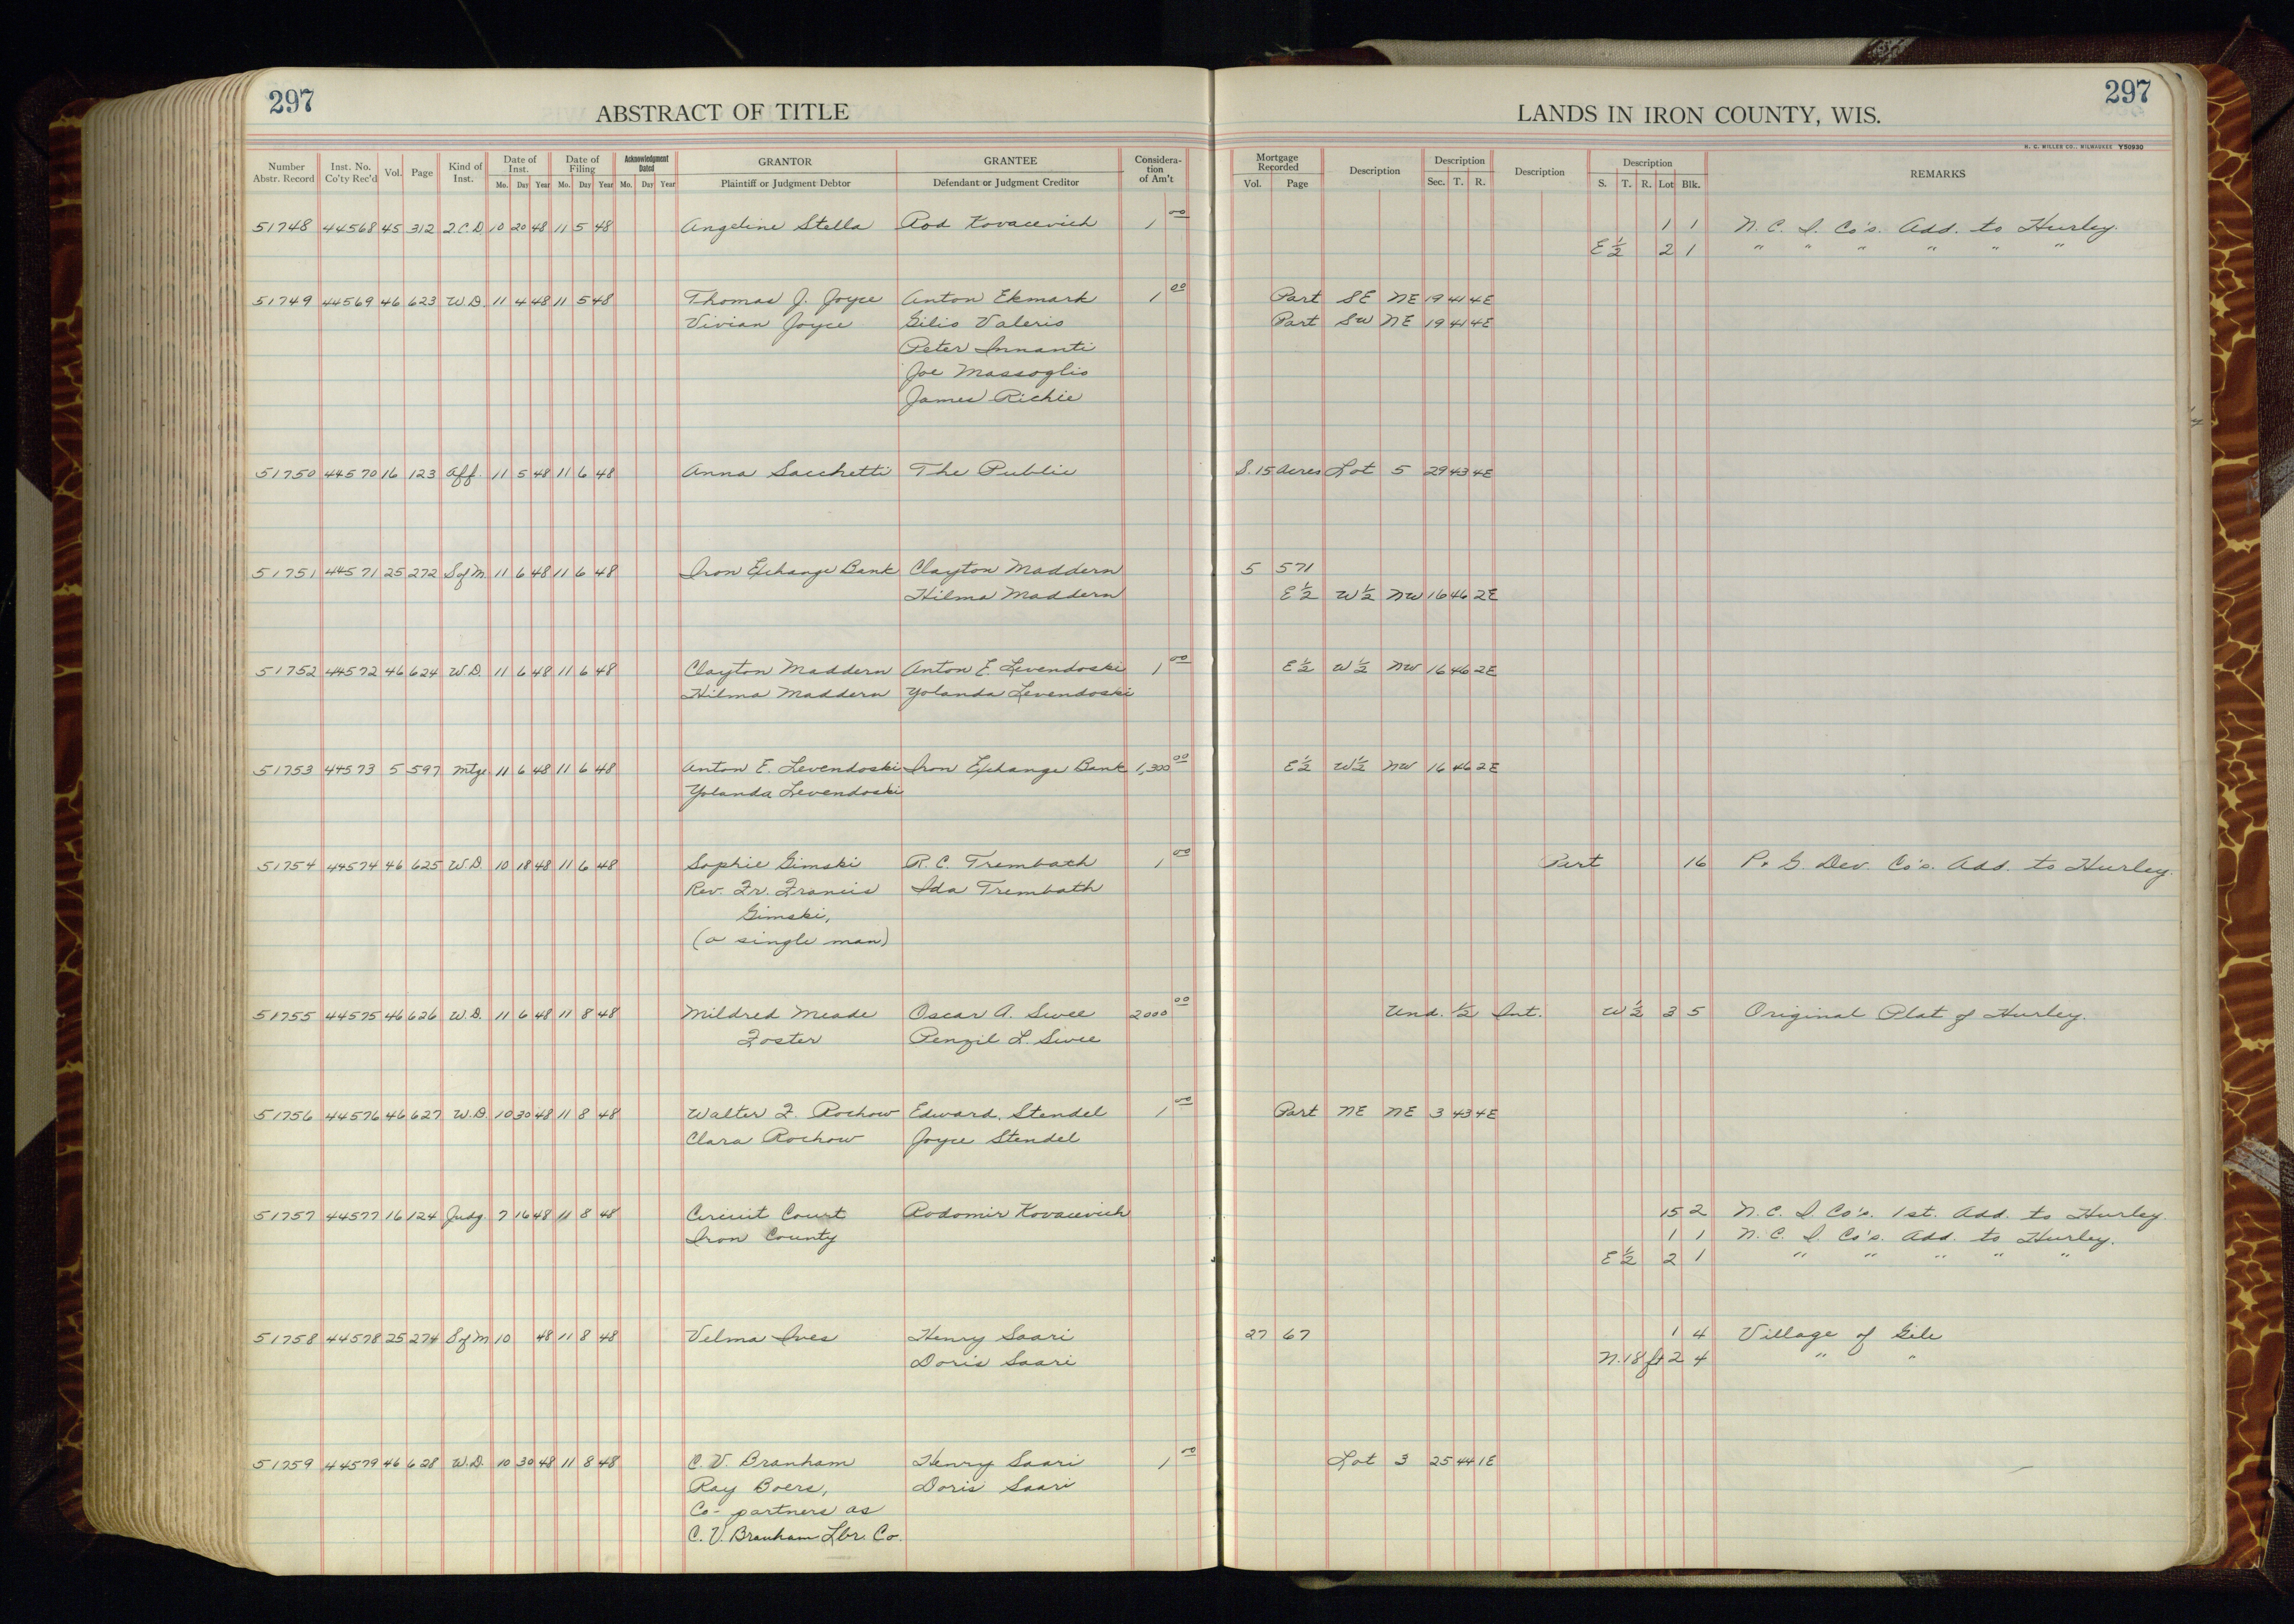 297
ABSTRACT OF TITLE
LANDS IN IRON COUNTY, WIS.
297
H. C. MILLER CO., MILWAUKEE Y50930
Number Abstr. Record | Inst. No. Co'ty Rec'd | Vol. | Page | Kind of Inst. | Date of Inst. Mo. Day Year | Date of Filing Mo. Day Year | Acknowledgment Dated Mo. Day Year | GRANTOR Plaintiff or Judgment Debtor | GRANTEE Defendant or Judgment Creditor | Considera-tion of Am't | Mortgage Recorded Vol. Page | Description | Description Sec. T. R. | Description | Description S. T. R. Lot Blk. | REMARKS
51748 44568 45 312 Q.C.D. 10 20 48 11 5 48 Angeline Stella Rod Kovacevich 1 00 1 1 N. C. I. Co's. Add. to Hurley.
E 1/2 2 1 " " " " " "
51749 44569 46 623 W.D. 11 4 48 11 5 48 Thomas J. Joyce Anton Ekmark 1 00 Part SE NE 19 41 4E
Vivian Joyce Gilio Valerio Part SW NE 19 41 4E
Peter Innanti
Joe Massoglio
James Richie
51750 44570 16 123 Aff. 11 5 48 11 6 48 Anna Sacchetti The Public S. 15 Acres Lot 5 29 43 4E
51751 44571 25 272 S of M. 11 6 48 11 6 48 Iron Exchange Bank Clayton Maddern 5 571
Hilma Maddern E 1/2 W 1/2 NW 16 46 2E
51752 44572 46 624 W.D. 11 6 48 11 6 48 Clayton Maddern Anton E. Levendoski 1 00 E 1/2 W 1/2 NW 16 46 2E
Hilma Maddern Yolanda Levendoski
51753 44573 5 597 Mtge 11 6 48 11 6 48 Anton E. Levendoski Iron Exchange Bank 1,300 00 E 1/2 W 1/2 NW 16 46 2E
Yolanda Levendoski
51754 44574 46 625 W.D. 10 18 48 11 6 48 Sophie Gimski R. C. Trembath 1 00 Part 16 P. & G. Dev. Co's. Add. to Hurley.
Rev. Fr. Francis Ida Trembath
Gimski,
(a single man)
51755 44575 46 626 W.D. 11 6 48 11 8 48 Mildred Meade Oscar A. Swee 2000 00 Und. 1/2 Int. W 1/2 3 5 Original Plat of Hurley.
Foster Penzil L. Swee
51756 44576 46 627 W.D. 10 30 48 11 8 48 Walter F. Rochow Edward Stendel 1 00 Part NE NE 3 43 4E
Clara Rochow Joyce Stendel
51757 44577 16 124 Judg. 7 16 48 11 8 48 Circuit Court Rodomir Kovacevich 15 2 N. C. I. Co's. 1st. Add. to Hurley.
Iron County 1 1 N. C. I. Co's. Add. to Hurley.
E 1/2 2 1 " " " " "
51758 44578 25 274 S of M 10 48 11 8 48 Velma Ives Henry Saari 27 67 1 4 Village of Gile
Doris Saari N. 18 ft 2 4 " "
51759 44579 46 628 W.D. 10 30 48 11 8 48 C. V. Branham Henry Saari 1 00 Lot 3 25 44 1E
Ray Boers, Doris Saari
Co-partners as
C. V. Branham Lbr. Co.